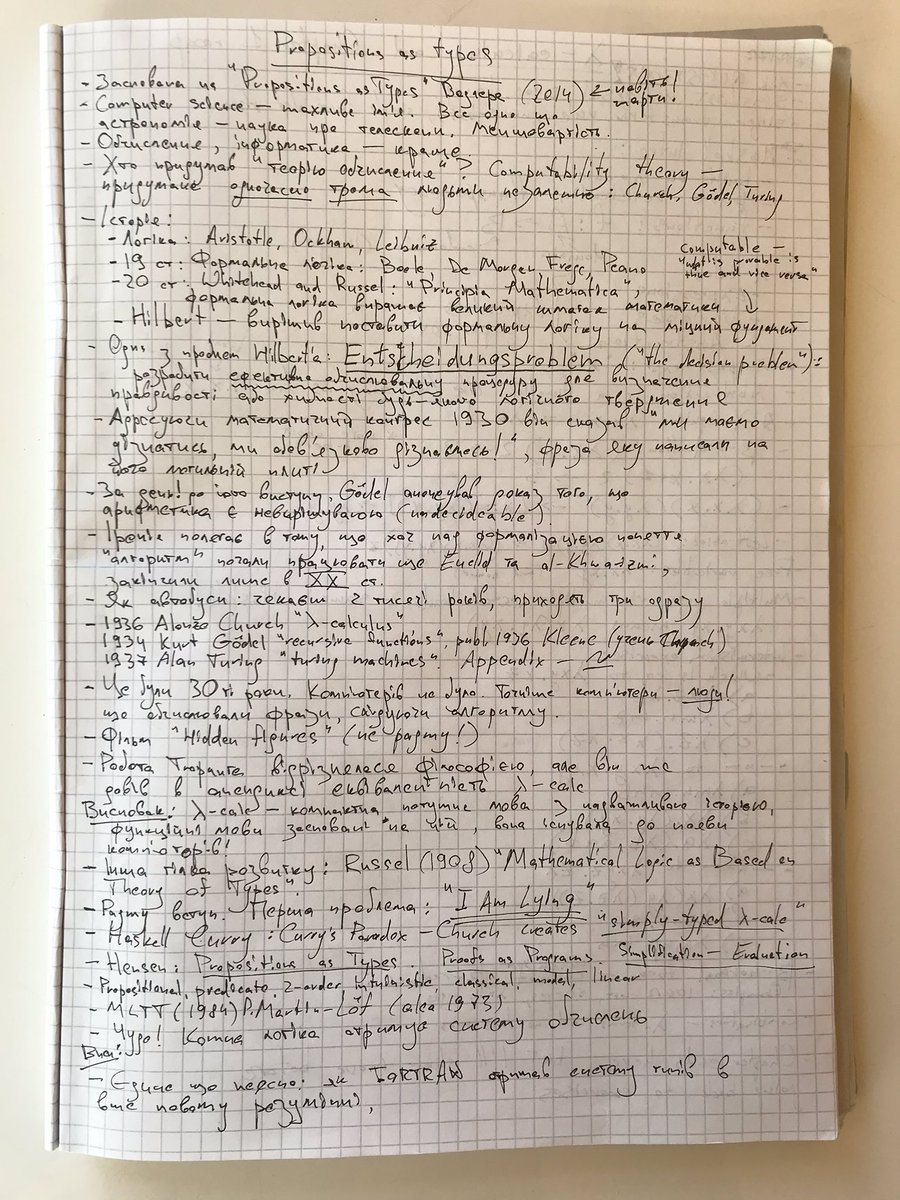 Propositions as types
- Заснована на "Propositions as Types" Вадлера (2014) ← навіть! жарти!
- Computer science — жахливе ім'я. Все одно що
астрономія — наука про телескопи. Меншовартість.
- Обчислення, інформатика — краще
- Хто придумав "теорію обчислення"? Computability theory —
придумане одночасно трома людьми незалежно: Church, Gödel, Turing
- Історія:
- Логіка: Aristotle, Ockham, Leibniz
- 19 ст: Формальна логіка: Boole, De Morgan, Frege, Peano
computable —
is provable is
true and vice versa"
- 20 ст: Whitehead and Russel: "Principia Mathematica",
формальна логіка виражає великий шматок математики
- Hilbert — вирішив поставити формальну логіку на міцний фундамент
- Одна з проблем Hilbert'a: Entscheidungsproblem ("the decision problem"):
розробити ефективно обчислювальну процедуру для визначення
правдивості або хибності будь-якого логічного твердження
- Адресуючи математичний конгрес 1930 він сказав "ми маємо
дізнатись, ми обов'язково дізнаємось!", фраза яку написали на
його могильній плиті
- За день! до його виступу, Gödel анонсував доказ того, що
арифметика є невирішуваною (undecideable).
- Іронія полягає в тому, що хоч над формалізацією поняття
"алгоритм" почали працювати ще Euclid та al-Khwarizmi,
закінчили лише в XX ст.
- Як автобуси: чекаєш 2 тисячі років, приходять три одразу
- 1936 Alonzo Church "λ-calculus"
1934 Kurt Gödel "recursive functions", publ 1936 Kleene (учень Church)
1937 Alan Turing "turing machines". Appendix —
- Це були 30ті роки. Комп'ютерів не було. Точніше комп'ютери — люди!
що обчислювали фрази, слідуючи алгоритму.
- Фільм "Hidden figures" (не раджу!)
- Робота Тюрінга відрізнялася філософією, але він же
довів в апендиксі еквівалентність λ-calc
Висновок: λ-calc — компактна потужна мова з надважливою історією,
функційні мови засновані на цій, вона існувала до появи
комп'ютерів!
- Інша гілка розвитку: Russel (1908) "Mathematical Logic as Based on
Theory of Types".
- Раджу вступ. Перша проблема: "I Am Lying"
- Haskell Curry: Curry's Paradox — Church creates "simply-typed λ-calc"
- Hensen: Propositions as Types Proofs as Programs. Simplification — Evaluation
- Propositional, predicate, 2-order, intuinistic, classical, modal, linear
- MLTT (1984) P. Martin-Löf (alea 1973)
- Чудо! Кожна логіка отримує систему обчислень
Висн:
- Єдине що персно: як FORTRAN отримав систему типів в
вже новому розумінні,